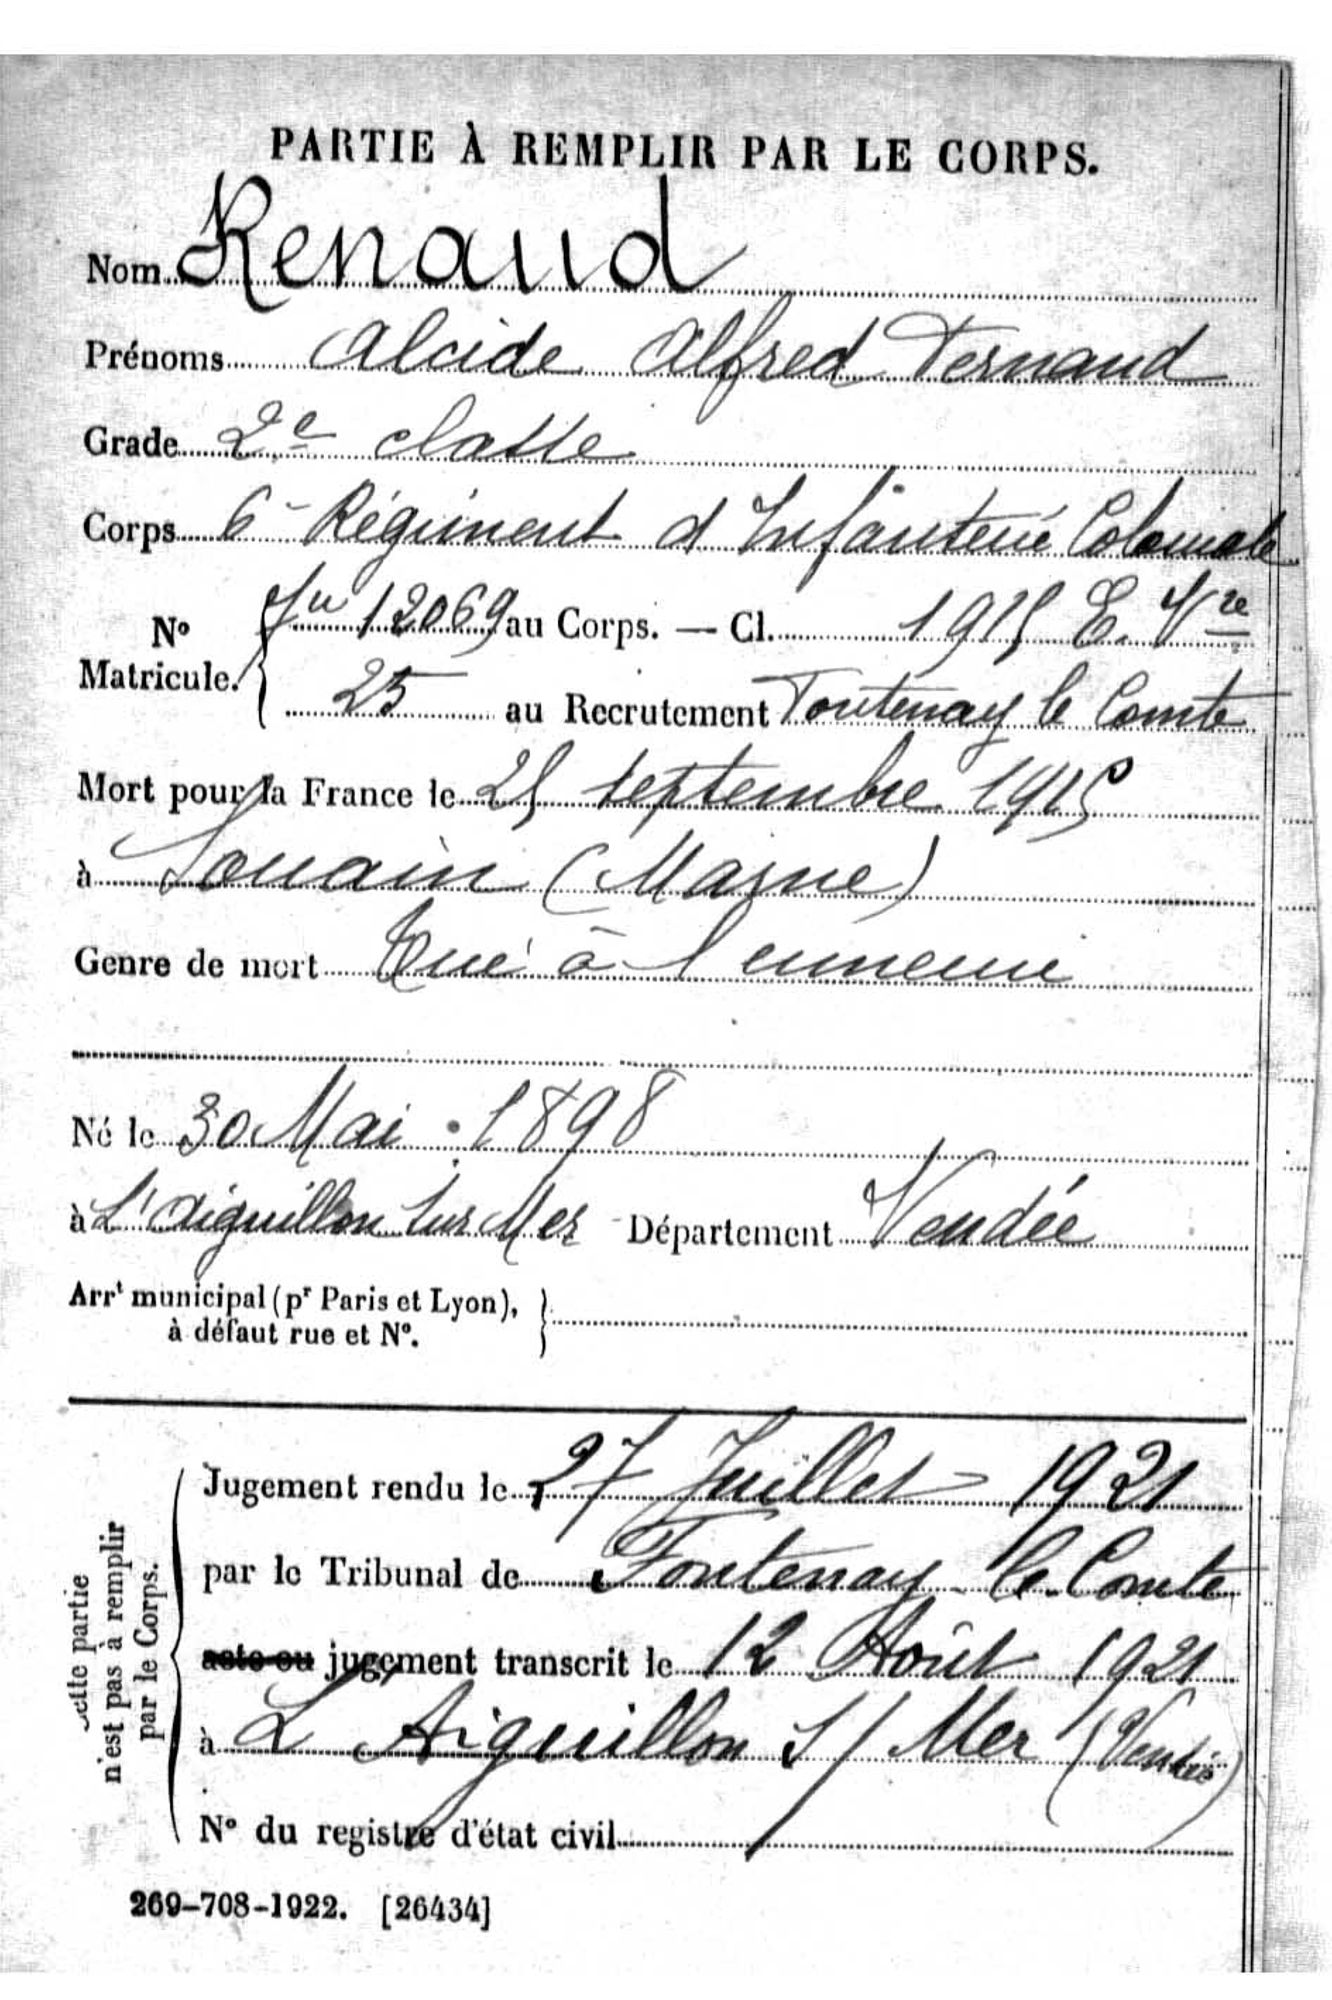 PARTIE À REMPLIR PAR LE CORPS.
Nom Renaud
Prénoms Alcide Alfred Fernand
Grade 2e classe
Corps 6e Régiment d'Infanterie Coloniale
No Matricule. 12069 au Corps. — Cl. 1915 E. Vre
25 au Recrutement Fontenay le Comte
Mort pour la France le 25 septembre 1915
à Souain (Marne)
Genre de mort Tué à l'ennemi
Né le 30 Mai 1898
à L'aiguillon sur Mer Département Vendée
Arrt municipal (pr Paris et Lyon),
à défaut rue et No.
Cette partie
n'est pas à remplir
par le Corps.
Jugement rendu le 27 Juillet 1921
par le Tribunal de Fontenay le Comte
acte ou jugement transcrit le 12 Août 1921
à L'Aiguillon s/ Mer (Vendée)
No du registre d'état civil /
269-708-1922. [26434]